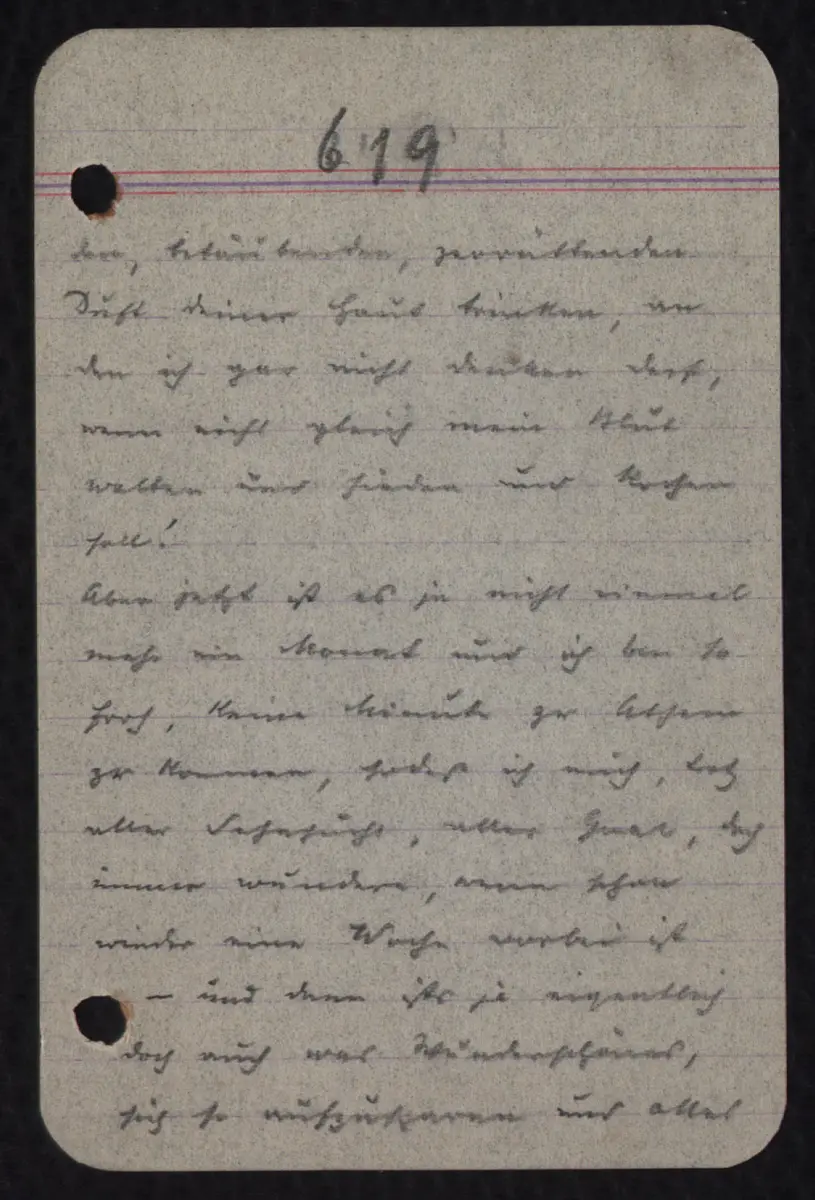 619
den, betäubenden, zerrüttenden
Duft deiner Haut trinken, an
den ich gar nicht denken darf,
wenn nicht gleich mein Blut
wallen und sieden und kochen
soll!
Aber jetzt ist es ja nicht einmal
mehr ein Monat und ich bin so
froh, keine Minute zu Athem
zu kommen, sodaß ich mich, trotz
aller Sehnsucht, aller Qual, doch
immer wundere, wenn schon
wieder eine Woche vorbei ist
– und dann ists ja eigentlich
doch auch was Wunderschönes,
sich so aufzusparen und alles